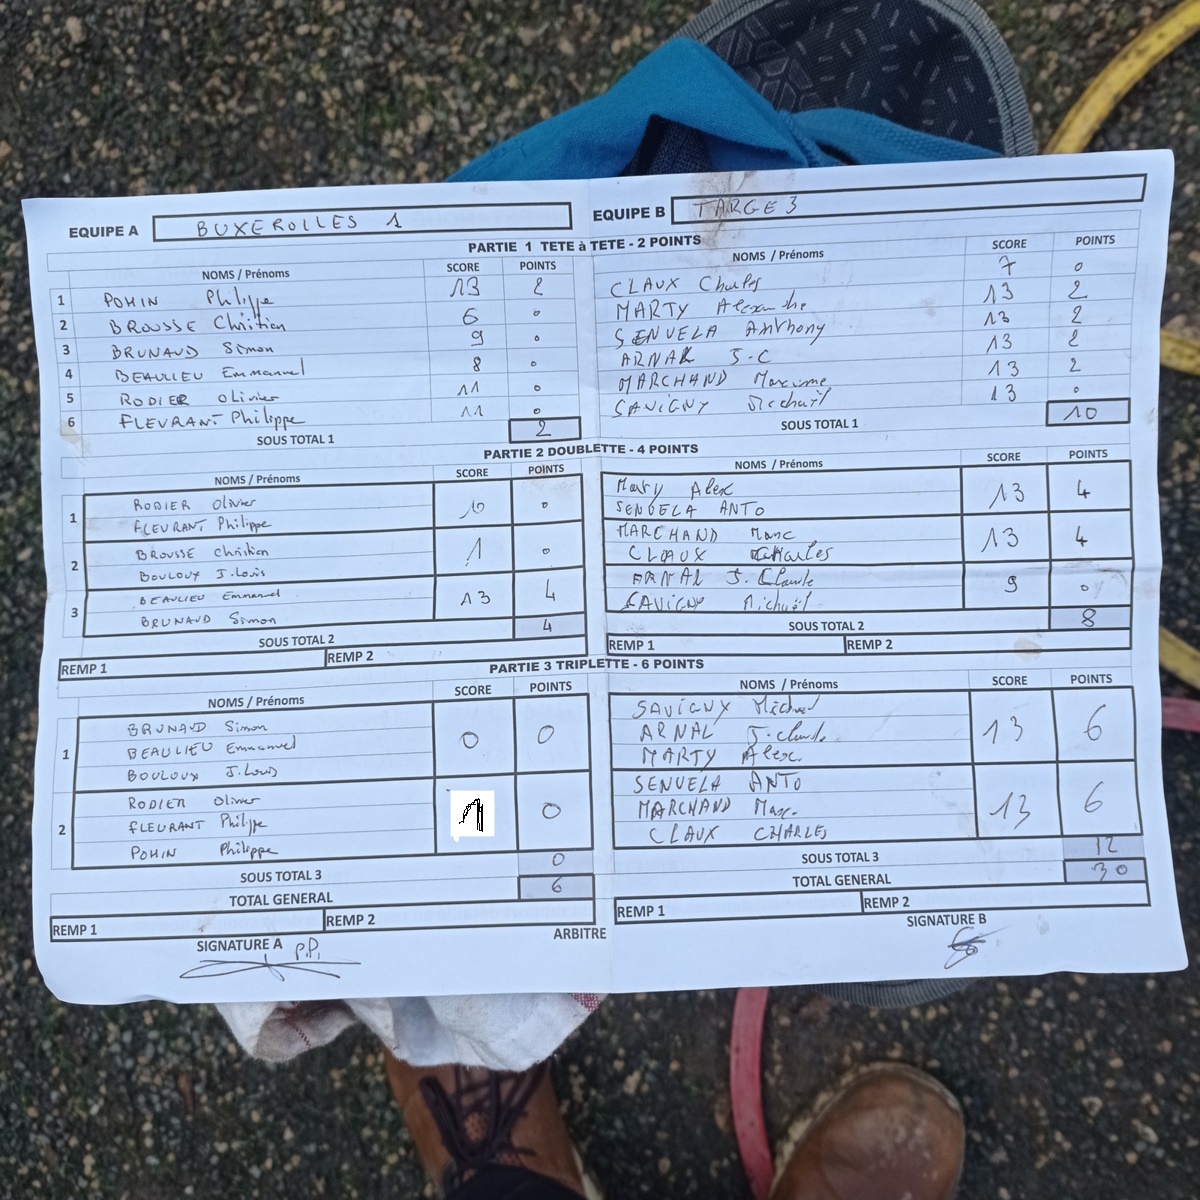 EQUIPE A BUXEROLLES 1 EQUIPE B TARGE 3
PARTIE 1 TETE à TETE - 2 POINTS
NOMS / Prénoms SCORE POINTS NOMS / Prénoms SCORE POINTS
1 POHIN Philippe 13 2 CLAUX Charles 7 0
2 BROUSSE Chritian 6 0 MARTY Alexandre 13 2
3 BRUNAUD Simon 9 0 SENUELA Anthony 13 2
4 BEAULIEU Emmanuel 8 0 ARNAL J-C 13 2
5 RODIER Olivier 11 0 MARCHAND Maxime 13 2
6 FLEURANT Philippe 11 0 SAVIGNY Michaël 13 0
SOUS TOTAL 1 2 SOUS TOTAL 1 10
PARTIE 2 DOUBLETTE - 4 POINTS
NOMS / Prénoms SCORE POINTS NOMS / Prénoms SCORE POINTS
1 RODIER Olivier 10 0 Marty Alex 13 4
FLEURANT Philippe SENUELA ANTO
2 BROUSSE Christian 1 0 MARCHAND 13 4
BOULOUX J.Louis CLAUX Charles
3 BEAULIEU Emmanuel 13 4 ARNAL J. Claude 9 0
BRUNAUD Simon SAVIGNY Michaël
SOUS TOTAL 2 4 SOUS TOTAL 2 8
REMP 1 REMP 2 REMP 1 REMP 2
PARTIE 3 TRIPLETTE - 6 POINTS
NOMS / Prénoms SCORE POINTS NOMS / Prénoms SCORE POINTS
1 BRUNAUD Simon 0 0 SAVIGNY Michael 13 6
BEAULIEU Emmanuel ARNAL J.claude
BOULOUX J.Louis MARTY Alex.
2 RODIER Olivier 1 0 SENUELA ANTO 13 6
FLEURANT Philippe MARCHAND Max.
POHIN Philippe CLAUX CHARLES
SOUS TOTAL 3 0 SOUS TOTAL 3 12
TOTAL GENERAL 6 TOTAL GENERAL 30
REMP 1 REMP 2 REMP 1 REMP 2
SIGNATURE A P.P. ARBITRE SIGNATURE B